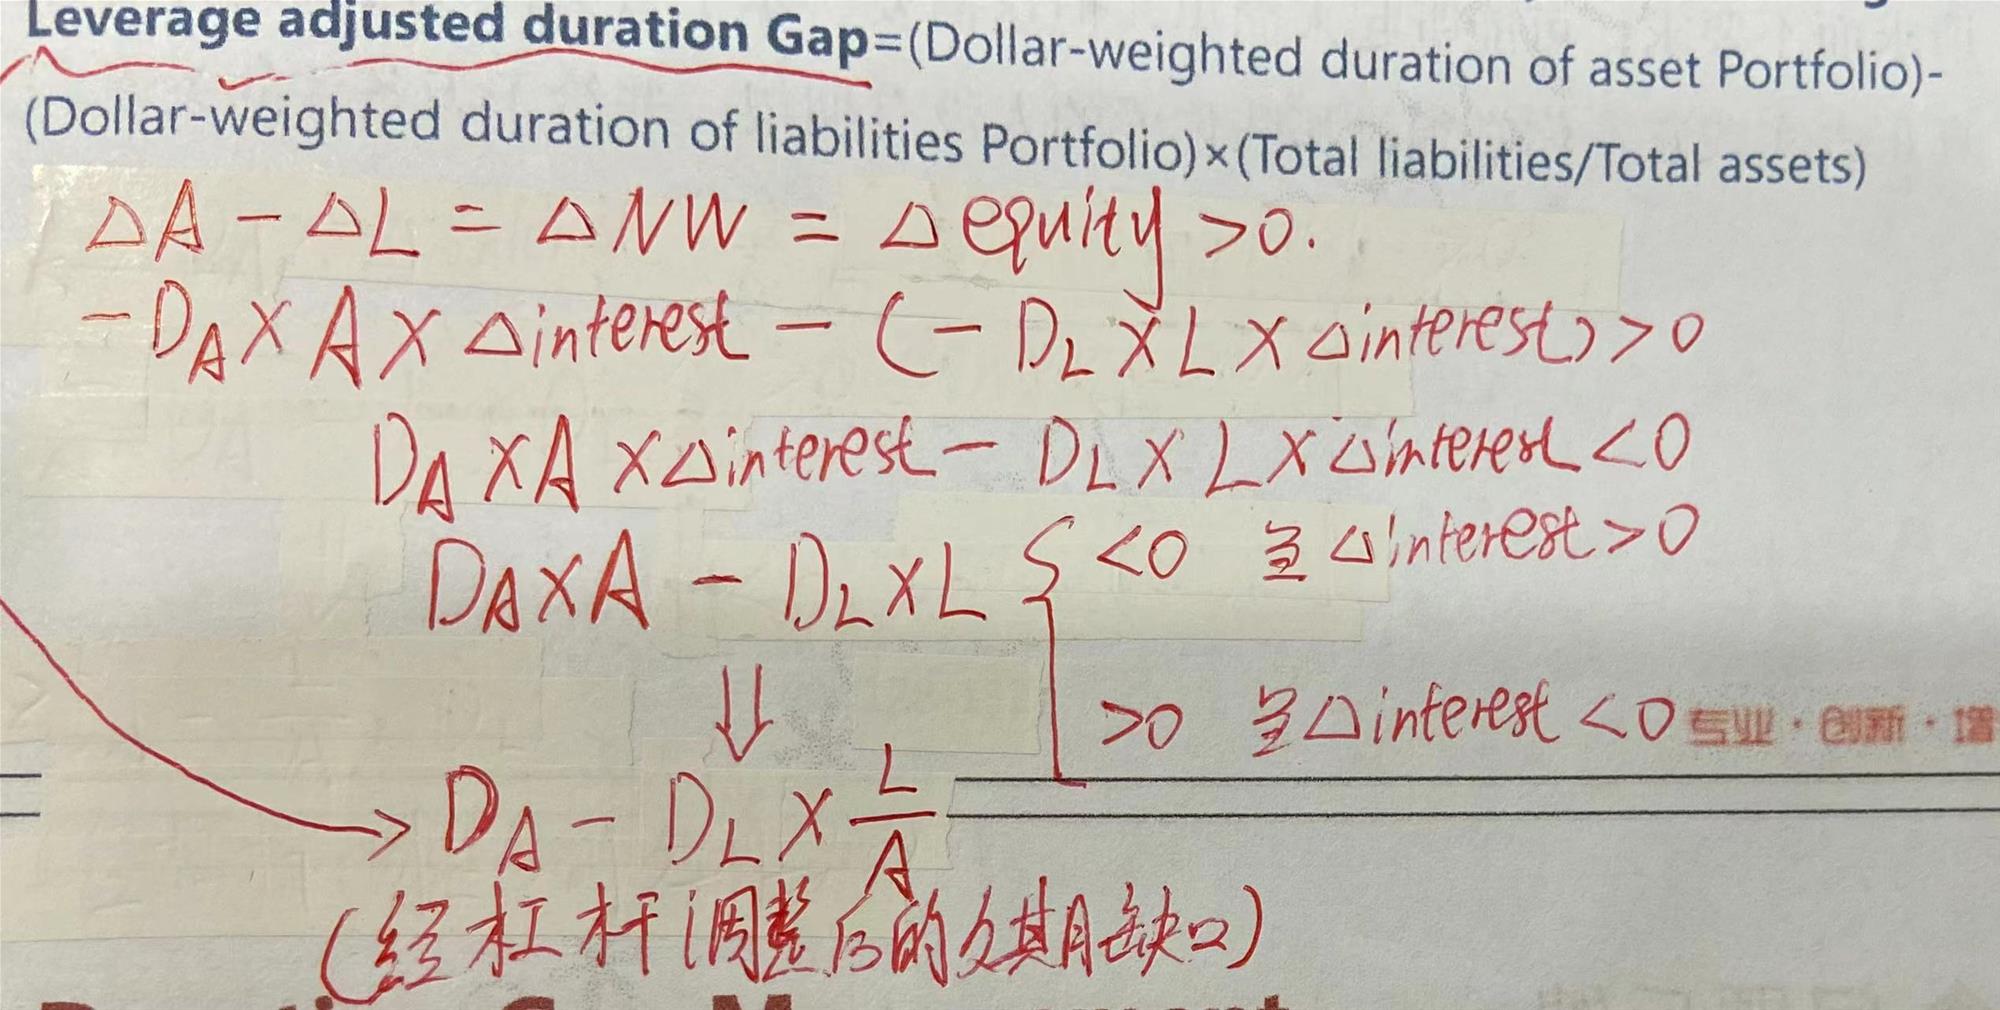 Leverage adjusted duration Gap=(Dollar-weighted duration of asset Portfolio)-
(Dollar-weighted duration of liabilities Portfolio)×(Total liabilities/Total assets)
△A - △L = △NW = △equity >0.
-D_A × A × △interest - (- D_L × L × △interest) >0
D_A × A × △interest - D_L × L × △interest <0
D_A × A - D_L × L { <0 △interest >0
>0 △interest <0 专业·创新·增
⇓
→ D_A - D_L × L/A
(经杠杆调整后的久期缺口)